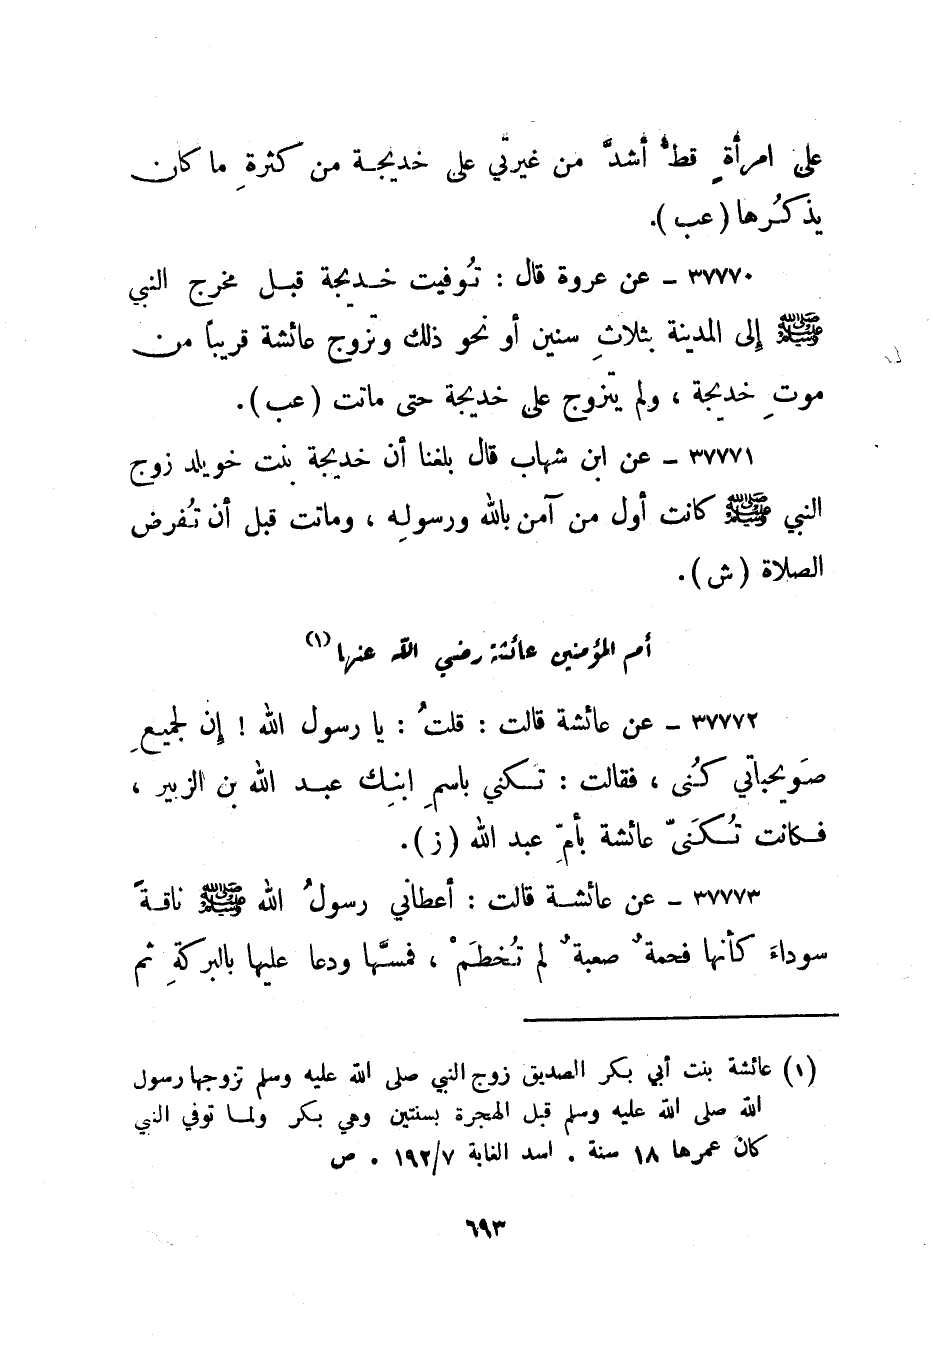 على امرأةٍ قطُّ أشدَّ من غيرتي على خديجة من كثرةِ ما كان
يذكُرها (عب).
٣٧٧٧٠ - عن عروة قال : تُوفيت خديجة قبل مخرج النبي
ﷺ إلى المدينة بثلاثِ سنين أو نحو ذلك وتزوج عائشة قريباً من
موتِ خديجة ، ولم يتزوج على خديجة حتى ماتت (عب).
٣٧٧٧١ - عن ابن شهاب قال بلغنا أن خديجة بنت خويلد زوج
النبي ﷺ كانت أول من آمن بالله ورسولِه ، وماتت قبل أن تُفرض
الصلاة (ش).
أم المؤمنين عائشة رضي الله عنها (١)
٣٧٧٧٢ - عن عائشة قالت : قلتُ : يا رسول الله ! إن لجميعِ
صَويحباتي كُنى ، فقالت : تكني باسمِ ابنِك عبد الله بن الزبير ،
فكانت تُكَنىّ عائشة بأمِّ عبد الله (ز).
٣٧٧٧٣ - عن عائشة قالت : أعطاني رسولُ الله ﷺ ناقةً
سوداءَ كأنها فحمةٌ صعبةٌ لم تُخطَمْ ، فمسَّها ودعا عليها بالبركةِ ثم
(١) عائشة بنت أبي بكر الصديق زوج النبي صلى الله عليه وسلم تزوجها رسول
الله صلى الله عليه وسلم قبل الهجرة بسنتين وهي بكر ولما توفي النبي
كان عمرها ١٨ سنة . اسد الغابة ١٩٢/٧ . ص
٦٩٣